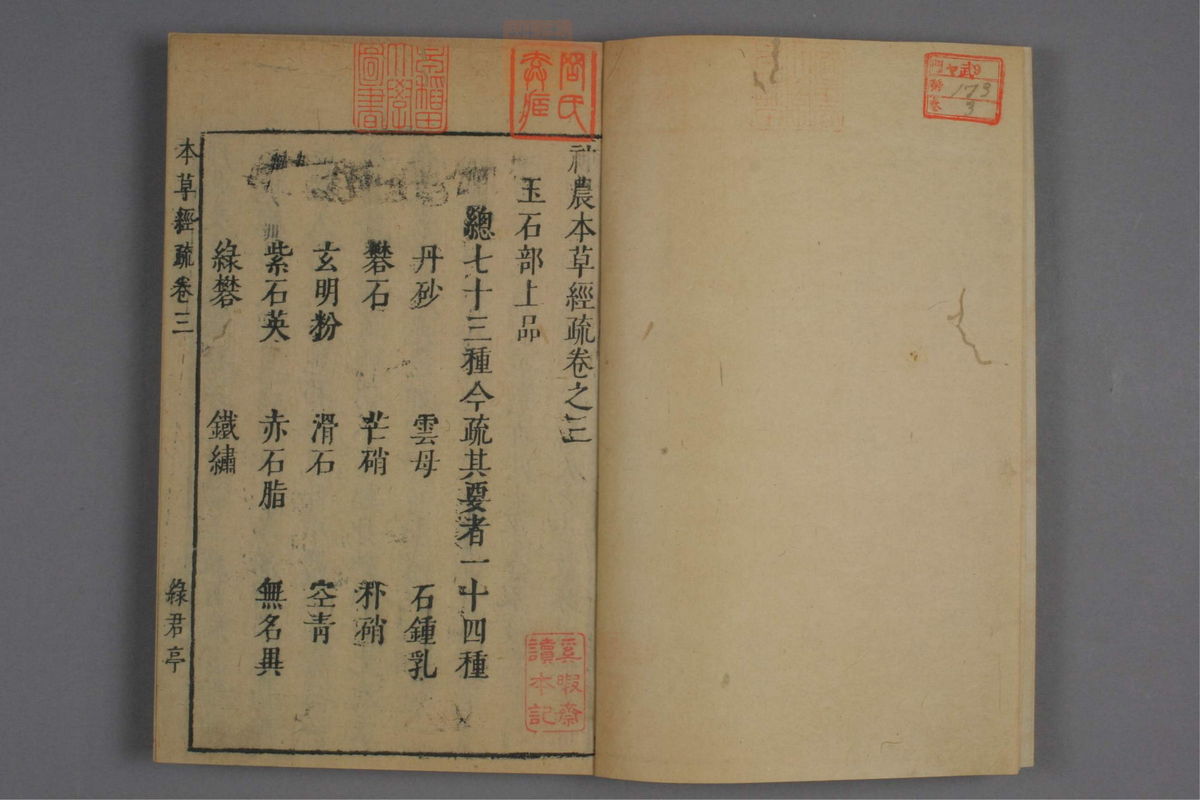 神農本草經疏卷之三
玉石部上品
總七十三種今疏其要者一十四種
丹砂 雲母 石鍾乳
礬石 芒硝 朴硝
玄明粉 滑石 空青
紫石英 赤石脂 無名異
綠礬 鐵繡
本草經疏 卷三 綠君亭
早稻田大學圖書
岡氏
奚暇齋讀本記
173
3